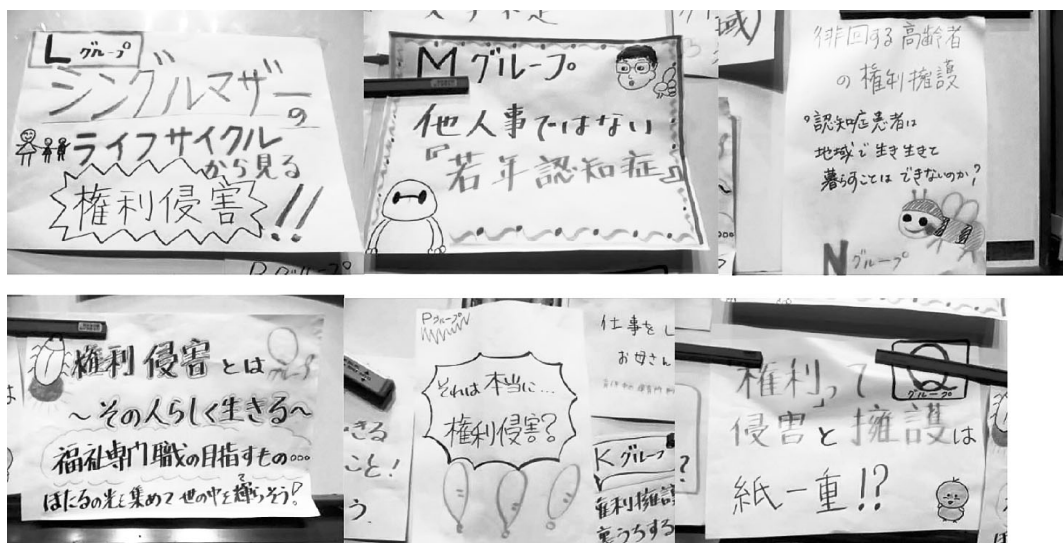 Lグループ
シングルマザーの
ライフサイクル
から見る
権利侵害!!
Mグループ
他人事ではない
『若年認知症』
徘徊する高齢者
の権利擁護
認知症患者は
地域で生き生きて
暮らすことはできないのか?
Nグループ
権利侵害とは
~その人らしく生きる~
福祉専門職の目指すもの…
ほたるの光を集めて世の中を輝らそう!
Pグループ
それは本当に…
権利侵害?
仕事をし
お母さん
Kグループ
権利擁護
裏うちする
Qグループ
権利って
侵害と擁護は
紙一重!?